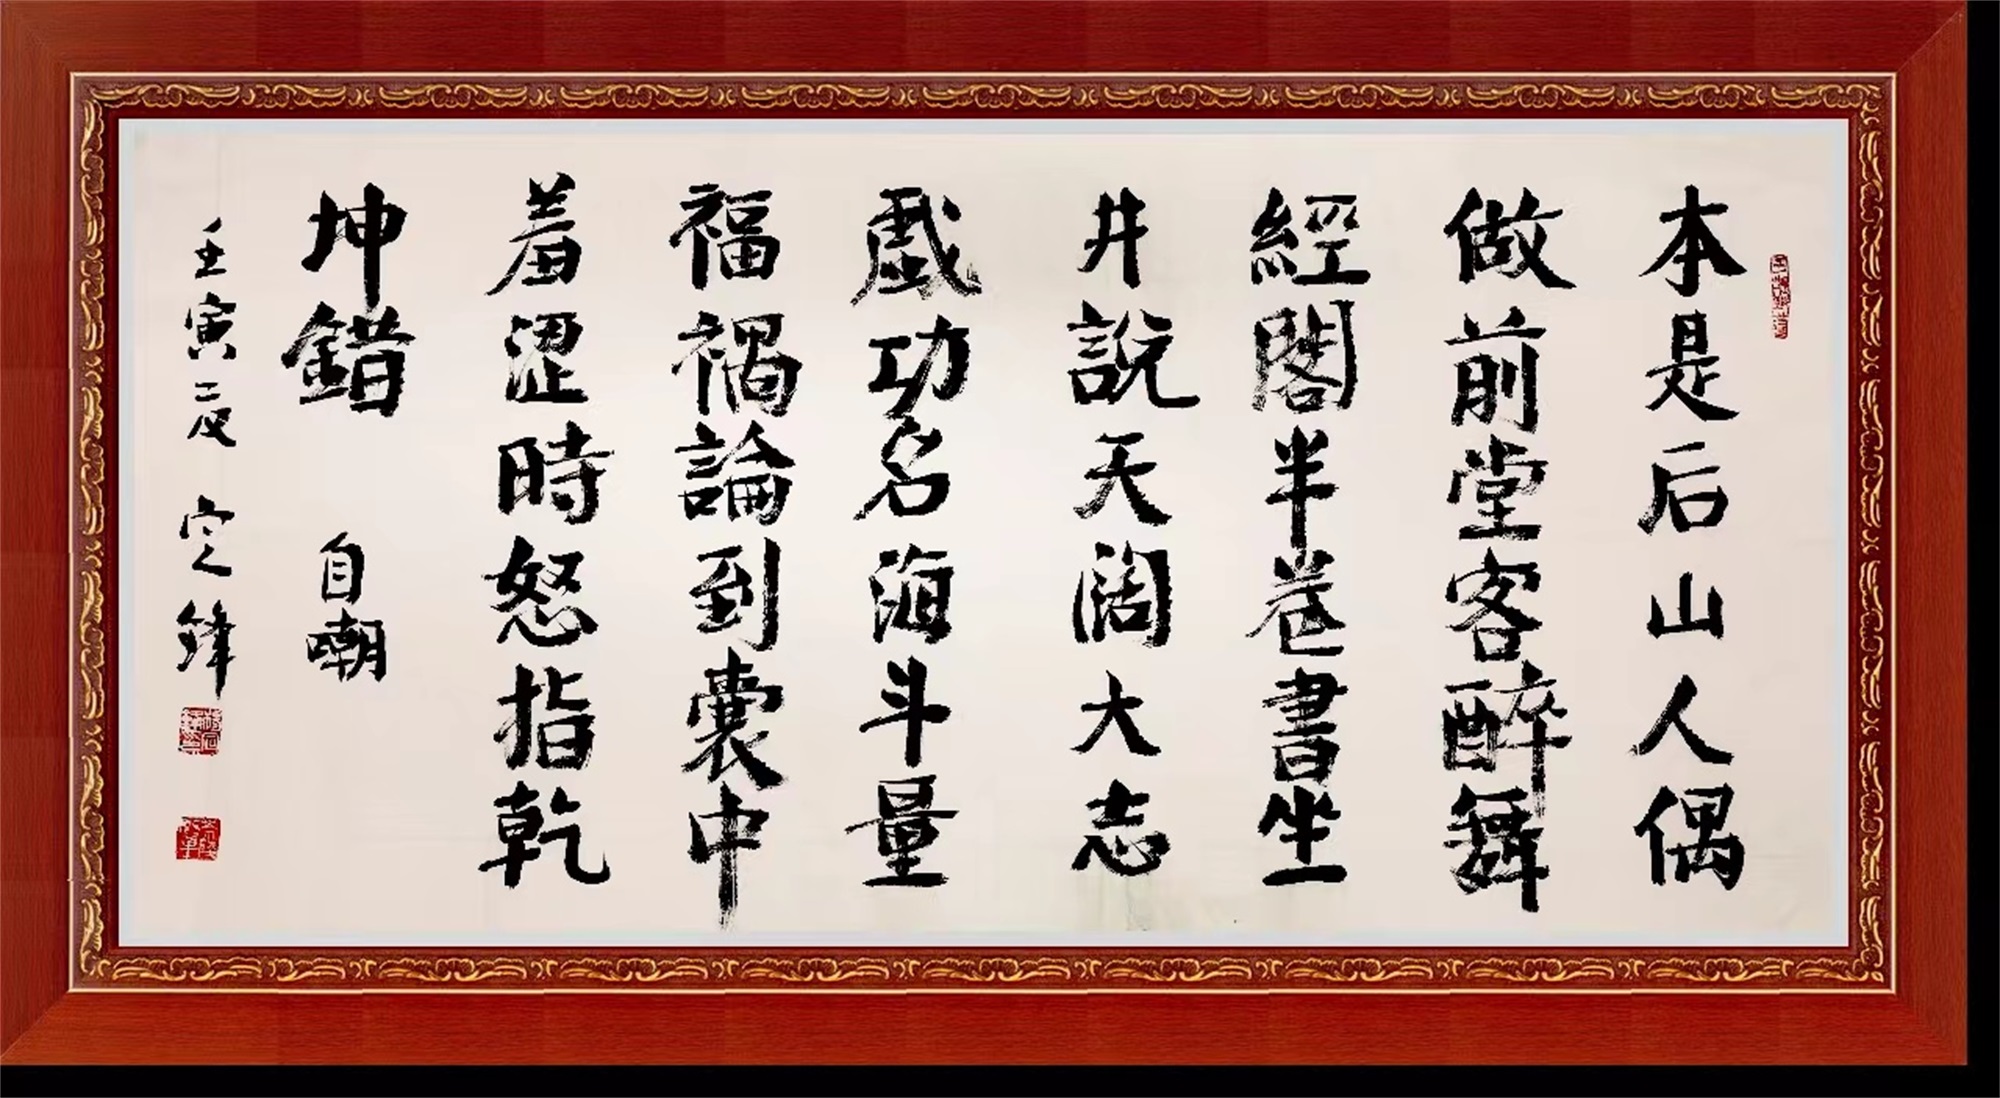 本是后山人偶
做前堂客醉舞
經閣半卷書坐
井說天闊大志
戲功名海斗量
福禍論到囊中
羞澀時怒指乾
坤錯 自嘲
壬寅二月 定鋒